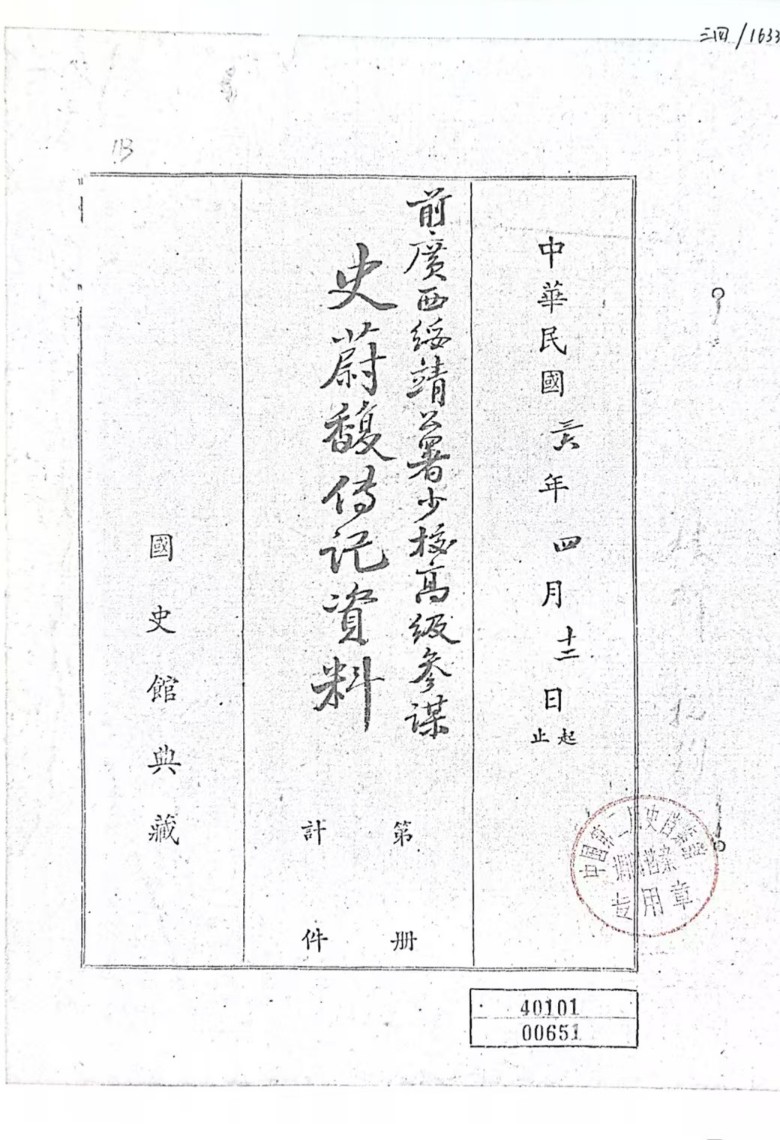 三四/1633
13
中華民國三六年四月十二日起止
前廣西綏靖公署少校高級參謀
史蔚馥傳记資料
第 册
計 件
國史館典藏
中国第二历史档案馆
档案
专用章
40101
00651